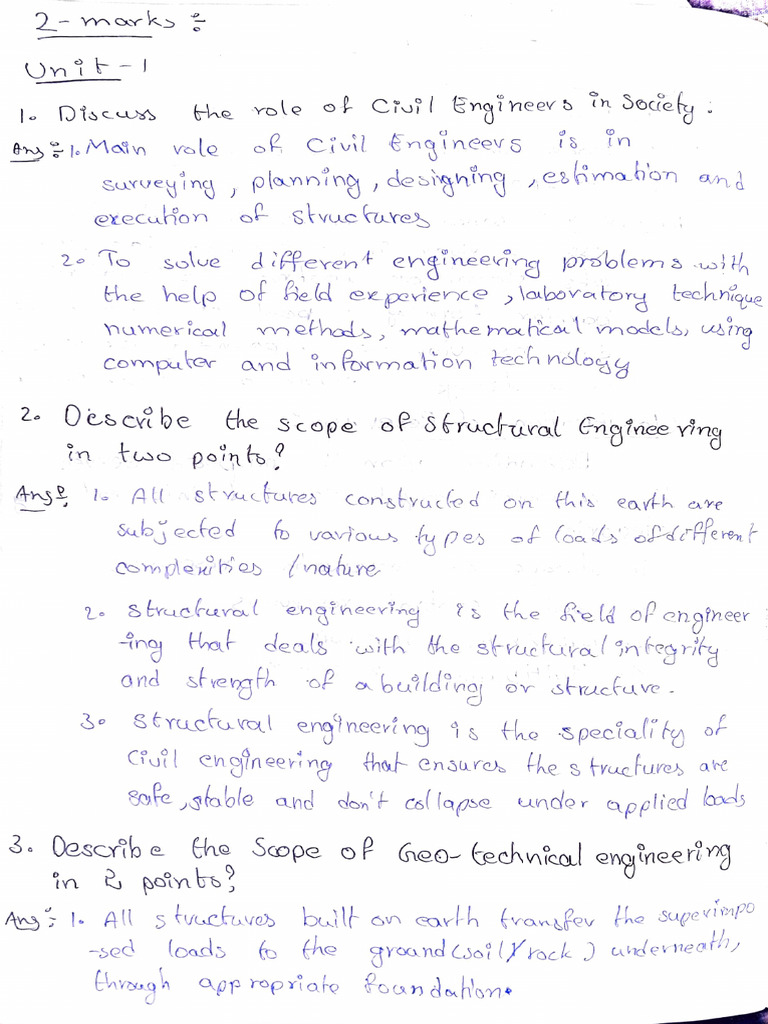 2-marks:-
Unit-1
1. Discuss the role of Civil Engineers in Society.
Ans:- 1. Main role of Civil Engineers is in
surveying, planning, designing, estimation and
execution of structures
2. To solve different engineering problems with
the help of field experience, laboratory technique
numerical methods, mathematical models, using
computer and information technology
2. Describe the scope of Structural Engineering
in two points?
Ans: 1. All structures constructed on this earth are
subjected to various types of loads of different
complexities /nature
2. Structural engineering is the field of engineer
-ing that deals with the structural integrity
and strength of a building or structure.
3. Structural engineering is the speciality of
Civil engineering that ensures the structures are
safe, stable and don't collapse under applied loads
3. Describe the Scope of Geo-technical engineering
in 2 points?
Ans:- 1. All structures built on earth transfer the superimpo
-sed loads to the ground (soil/rock) underneath,
through appropriate foundation.